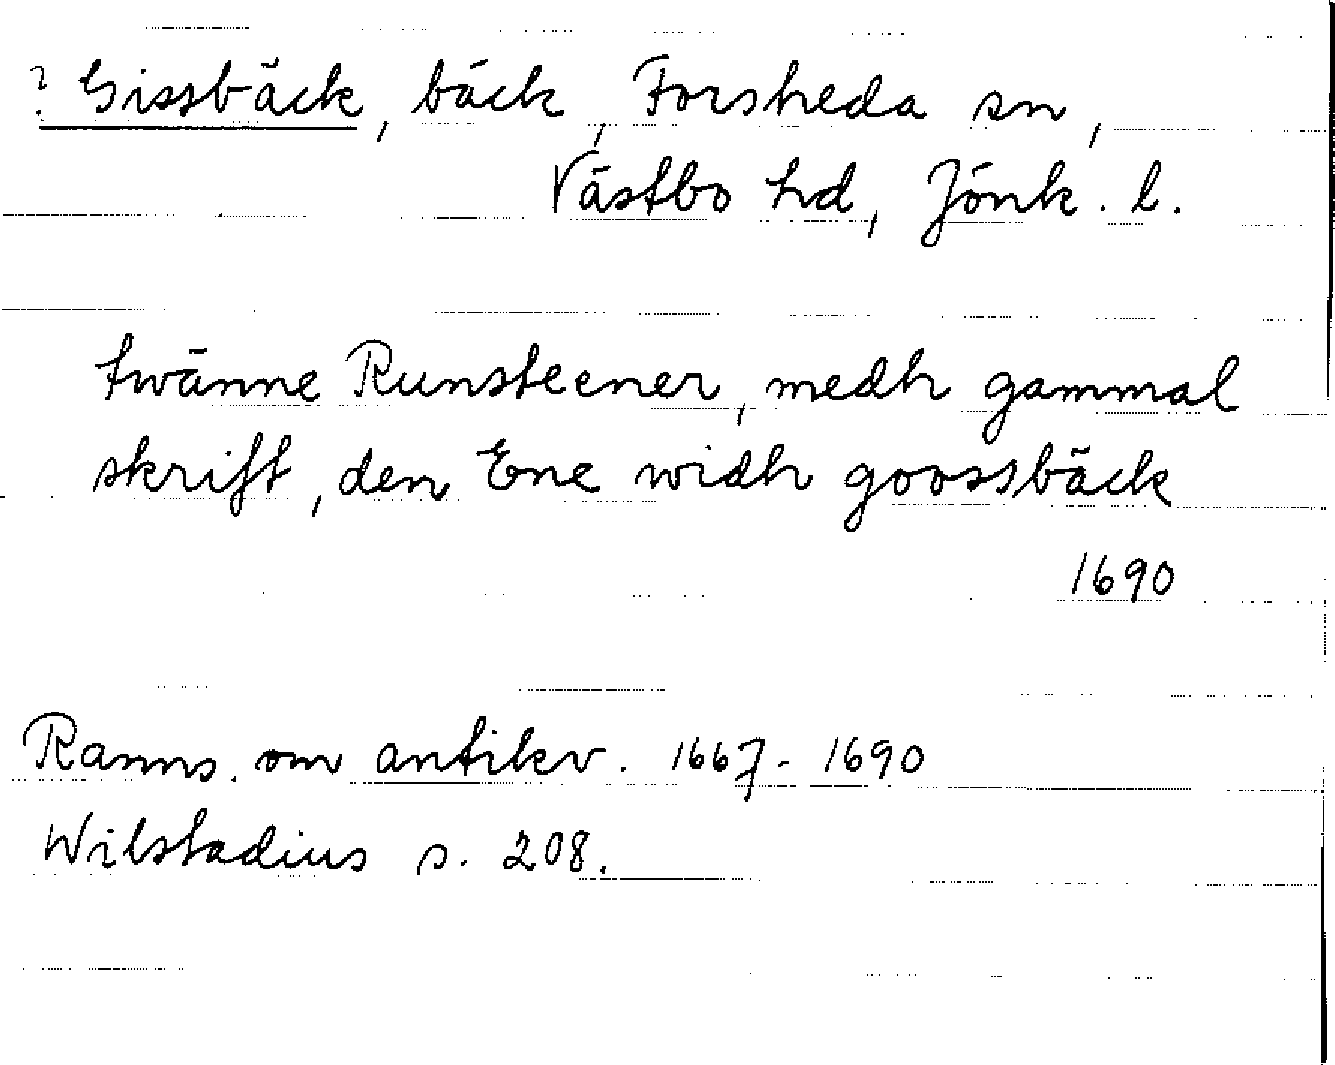 ? Gissbäck, bäck, Forsheda sn,
Västbo hd, Jönk. l.
twänne Runsteener, medh gammal
skrift, den Ene widh goossbäck
1690
Ranns. om antikv. 1667-1690
Wilstadius s. 208.